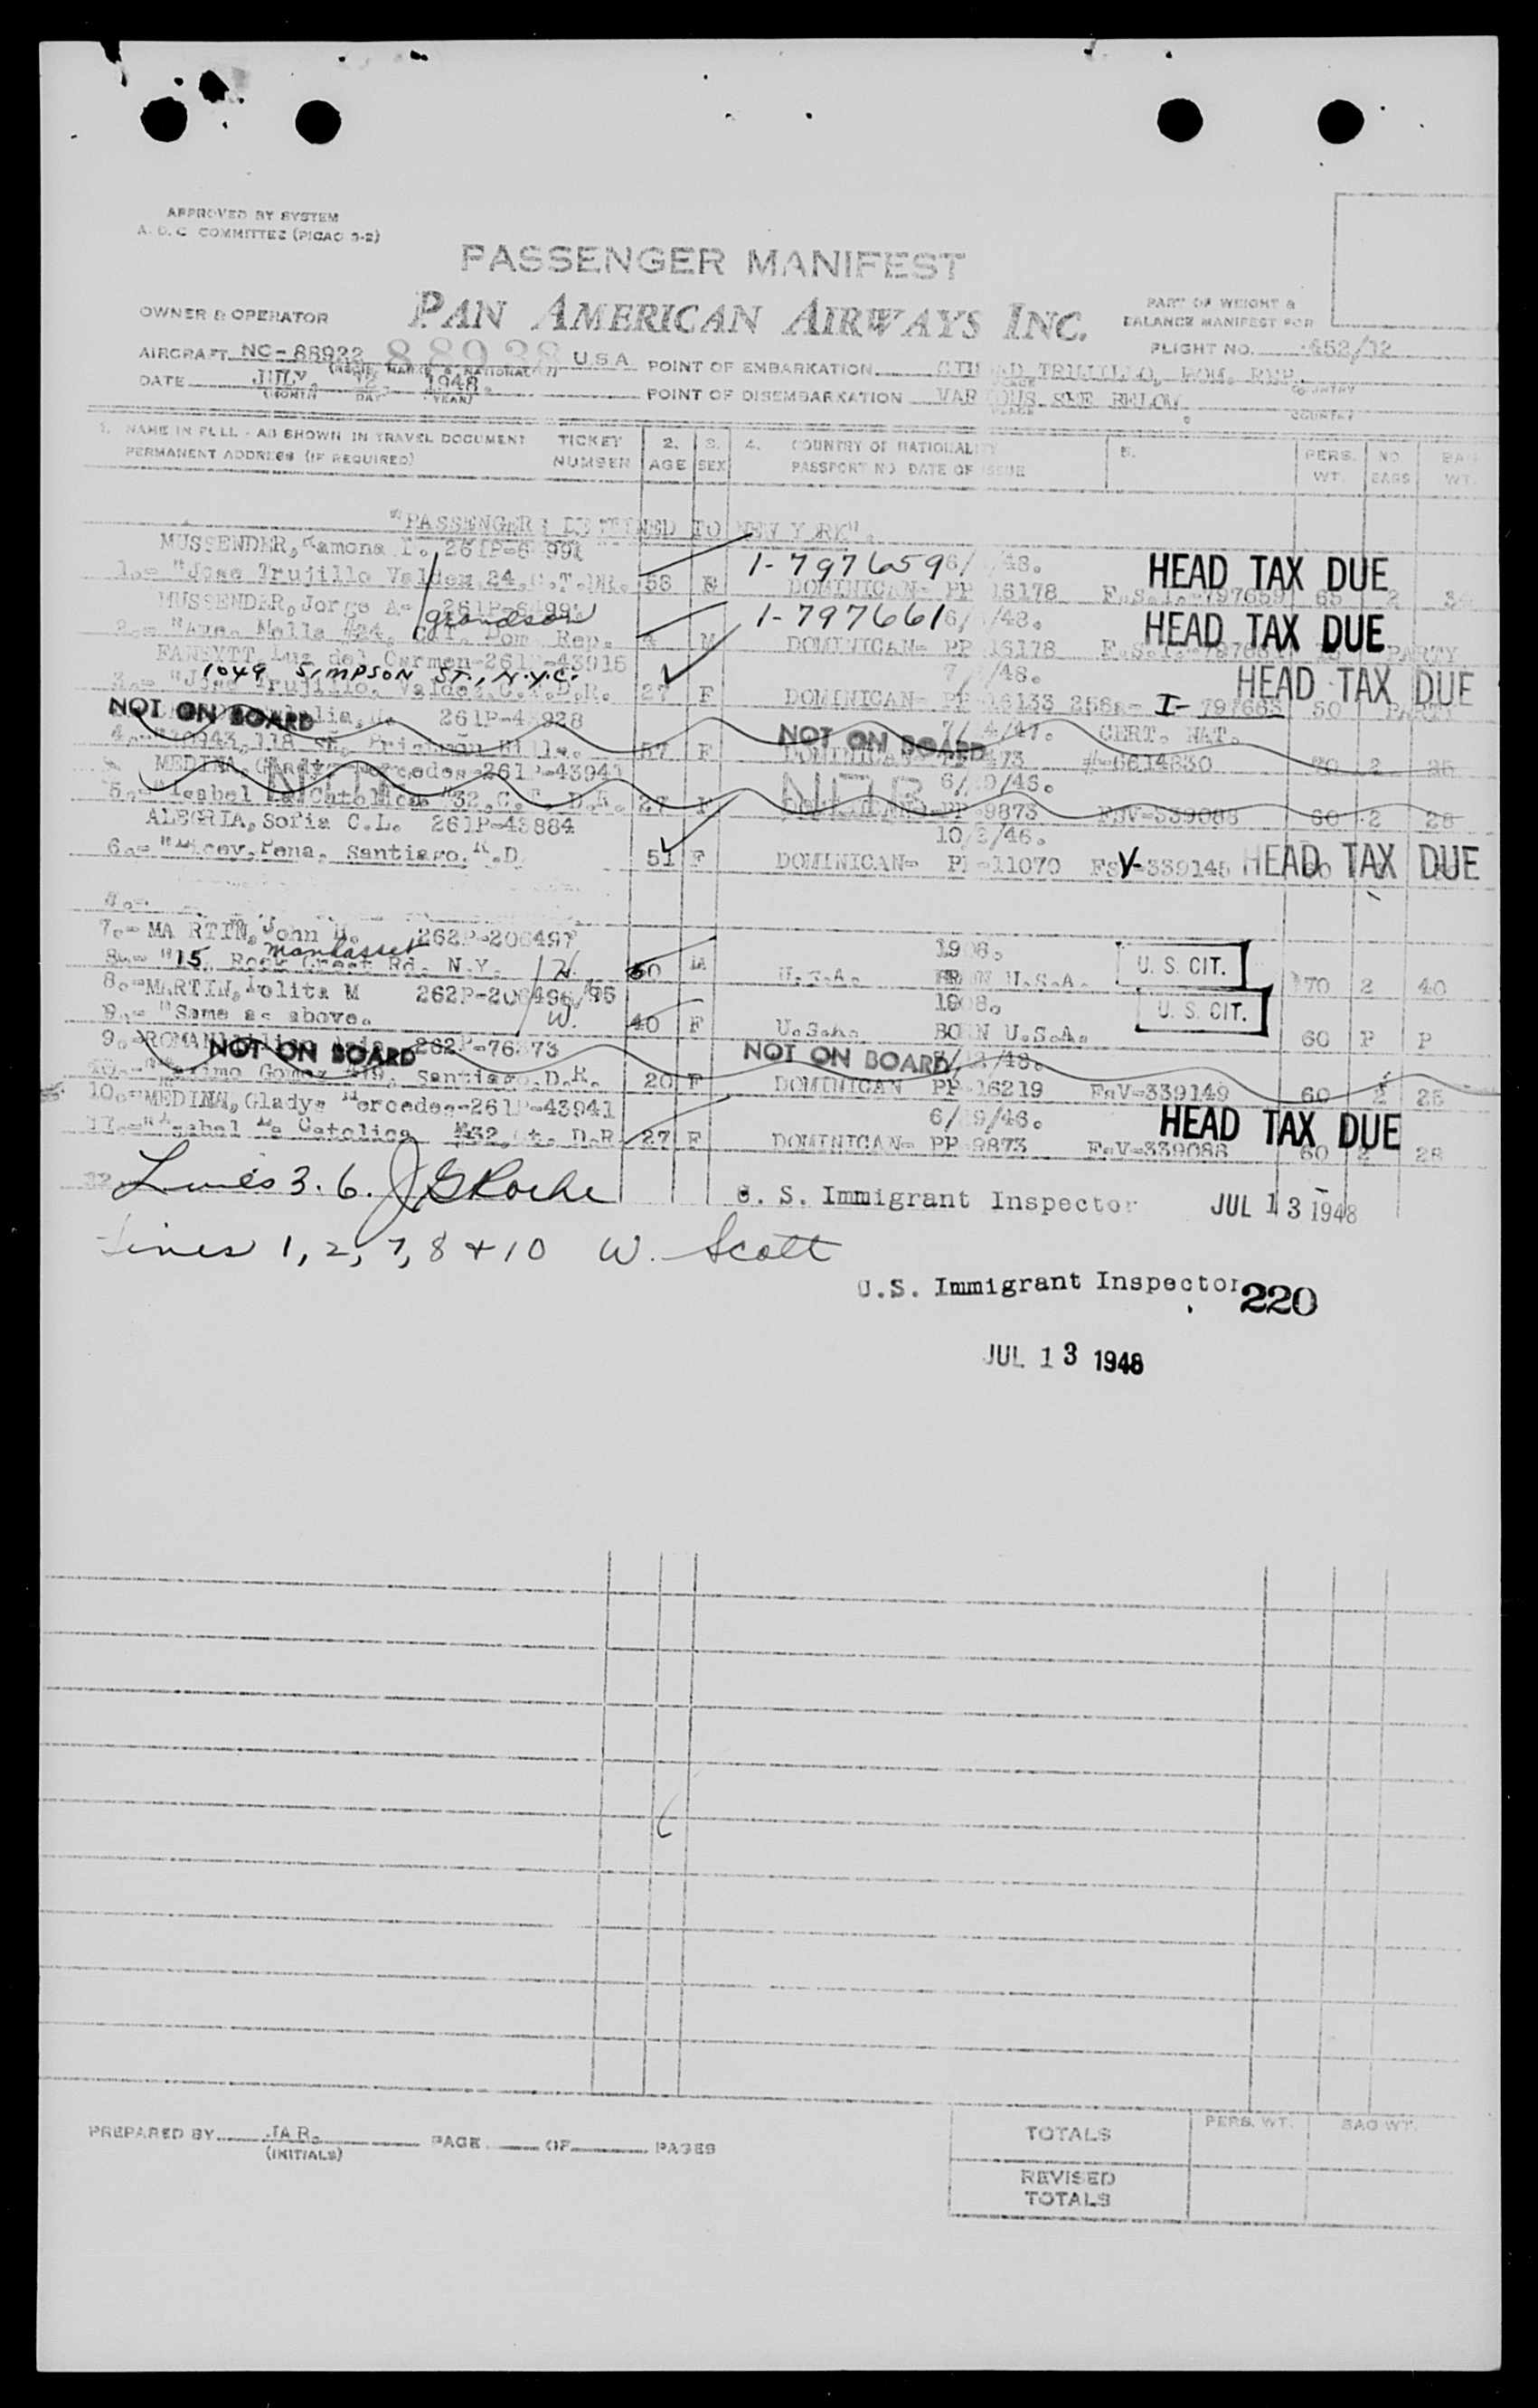 APPROVED BY SYSTEM
A. D. C COMMITTEE (PICAO 3-2)
PASSENGER MANIFEST
OWNER & OPERATOR
PAN AMERICAN AIRWAYS INC.
PART OF WEIGHT &
BALANCE MANIFEST FOR
AIRCRAFT NC-88922 88938 U.S.A. POINT OF EMBARKATION TRUJILLO, DOM. REP.
FLIGHT NO. 452/12
DATE JULY 12 1948.
(MONTH DAY YEAR)
POINT OF DISEMBARKATION VARIOUS SEE BELOW
COUNTRY
1. NAME IN FULL - AS SHOWN IN TRAVEL DOCUMENT TICKET 2. 3. 4. COUNTRY OF NATIONALITY 5. PERS. NO BAG
PERMANENT ADDRESS (IF REQUIRED) NUMBER AGE SEX PASSPORT NO DATE OF ISSUE WT. BAGS WT.
"PASSENGERS DESTINED TO NEW YORK".
MUSSENDER, Ramona 1-797659 HEAD TAX DUE
1.- "Jose Trujillo Valdez 24, 58 DOMINICAN- PP 16178 797659 65 2
MUSSENDER, Jorge A- grandson 1-797661 HEAD TAX DUE
2.- "Ave. Mella #24, Dom. Rep. 4 M DOMINICAN- PP 16178 PARTY
Luz del Carmen-261P-43915 HEAD TAX DUE
1049 SIMPSON ST., N.Y.C.
3.- "Jose Trujillo, Valdez, C.T.D.R. 27 F DOMINICAN- 16133 I- 797663 50
NOT ON BOARD 261P-43928 NOT ON BOARD CERT. NAT.
4.- 57 F DOMINICAN 6614830 2
MEDINA, Gladys Mercedes-261P-43941 NOB
5.- "Isabel La Catolica #32, C.T. D.R. 27 F PP-9873 FSV-339088 60 2 28
ALEGRIA, Sofia C.L. 261P-43884
6.- Pena. Santiago. R.D. 51 F DOMINICAN- PP-11070 FSV-339145 HEAD TAX DUE
7.- MARTIN, John 262P-206497 U. S. CIT.
Manhasset
"15, Rock Crest Rd. N.Y. H. 60 M U.S.A. BORN U.S.A. 70 2 40
8.- MARTIN, Lolita M 262P-206496/95 1908. U. S. CIT.
"Same as above. W. 40 F U.S.A. BORN U.S.A. 60 P P
9.- ROMAN 262P-76373 NOT ON BOARD NOT ON BOARD
Maximo Gomez #19, Santiago, D.R. 20 F DOMINICAN PP-16219 FSV-339149 60 2 25
10.- MEDINA, Gladys Mercedes-261P-43941 HEAD TAX DUE
"Isabel La Catolica #32, D.R. 27 F DOMINICAN- PP 9873 FSV-339088 60 2 28
Lines 3. 6. J G Roche U. S. Immigrant Inspector JUL 13 1948
Lines 1, 2, 7, 8 + 10 W. Scott
U.S. Immigrant Inspector 220
JUL 13 1948
PREPARED BY JAR. PAGE OF PAGES
(INITIALS)
TOTALS PERS. WT. BAG WT.
REVISED
TOTALS